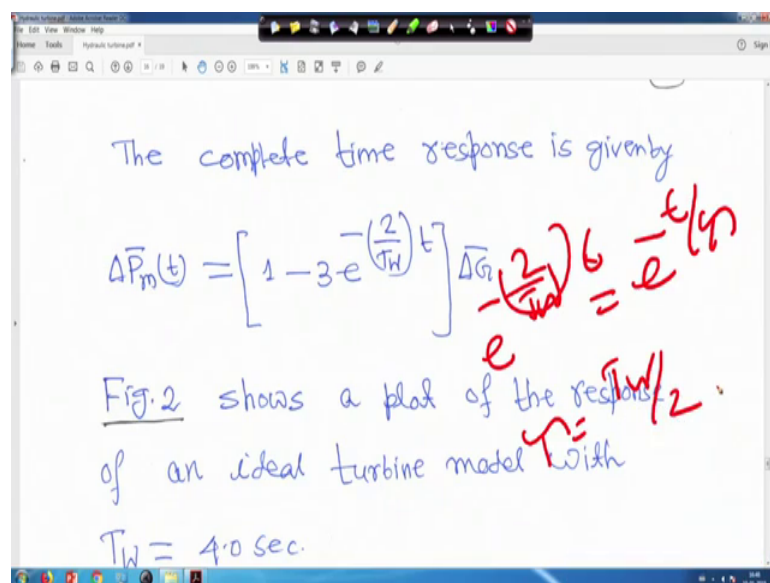 Hydraulic turbine.pdf - Adobe Acrobat Reader DC
File Edit View Window Help
Home Tools Hydraulic turbine.pdf × Sign
The complete time response is given by
ΔP̄m(t) = [1 - 3e^-(2/TW)t] ΔḠ
e^-(2/TW)t = e^-t/τ
τ = TW/2
Fig. 2 shows a plot of the response
of an ideal turbine model with
TW = 4.0 sec.